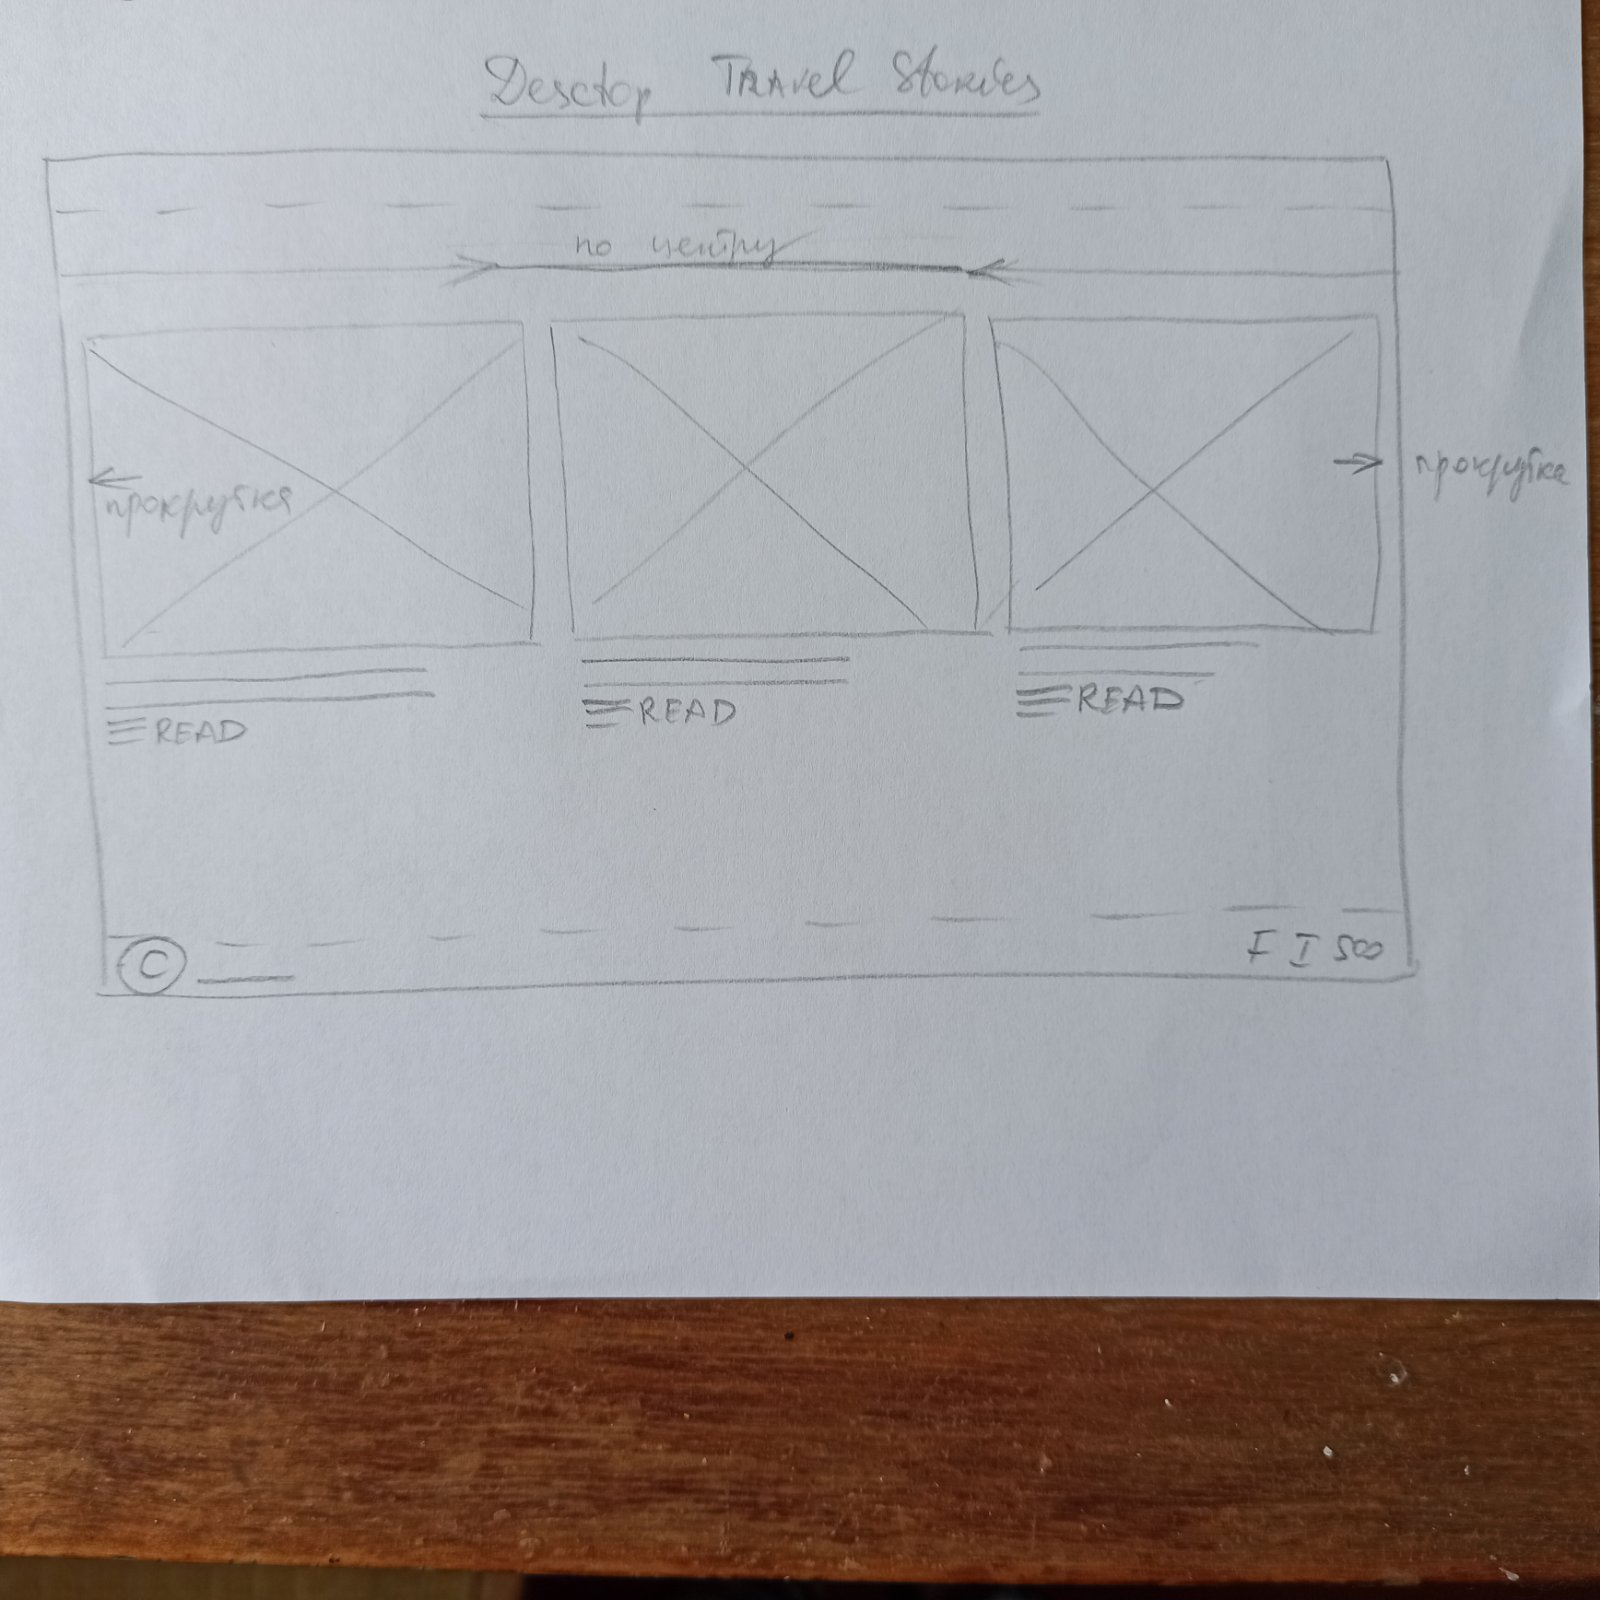 Desctop Travel Stories
по центру
прокрутка
прокрутка
READ
READ
READ
©
F I